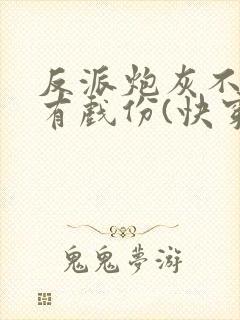 反派炮灰不
有戏份(快穿
鬼鬼夢游